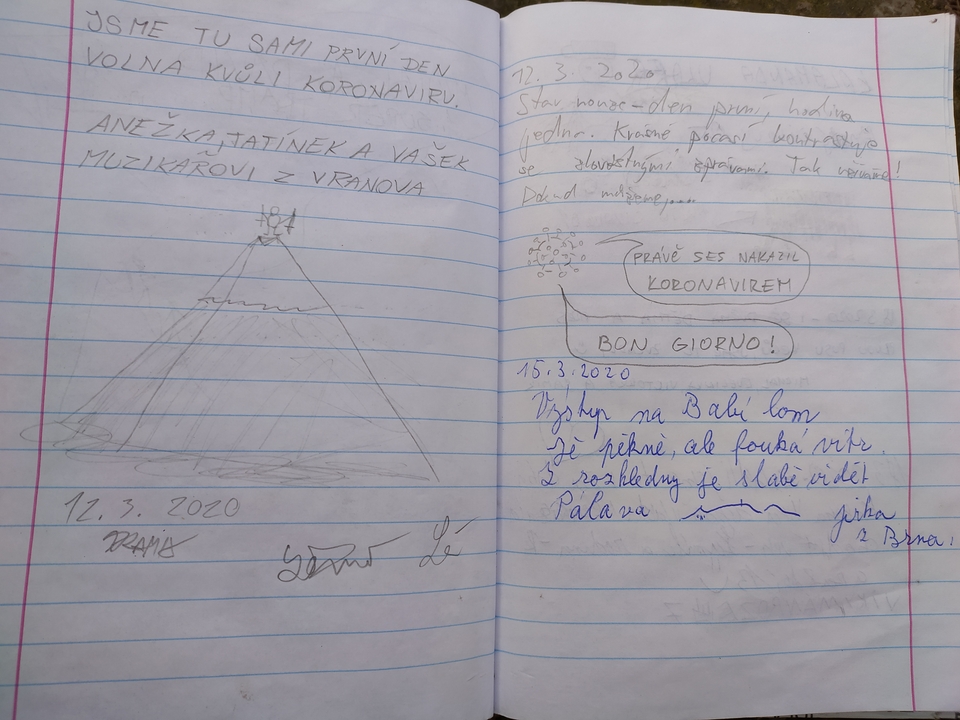 JSME TU SAMI PRVNÍ DEN
VOLNA KVŮLI KORONAVIRU.
ANEŽKA, TATÍNEK A VAŠEK
MUZIKAŘOVI Z VRANOVA
12. 3. 2020
12. 3. 2020
Stav nouze - den první, hodina
jedna. Krásné počasí kontrastuje
se zlověstnými zprávami. Tak
Dokud můžeme....
PRÁVĚ SES NAKAZIL
KORONAVIREM
BON GIORNO!
15.3.2020
Výstup na Babí lom
je pěkně, ale fouká vítr.
Z rozhledny je slabě vidět
Pálava jirka
z Brna.